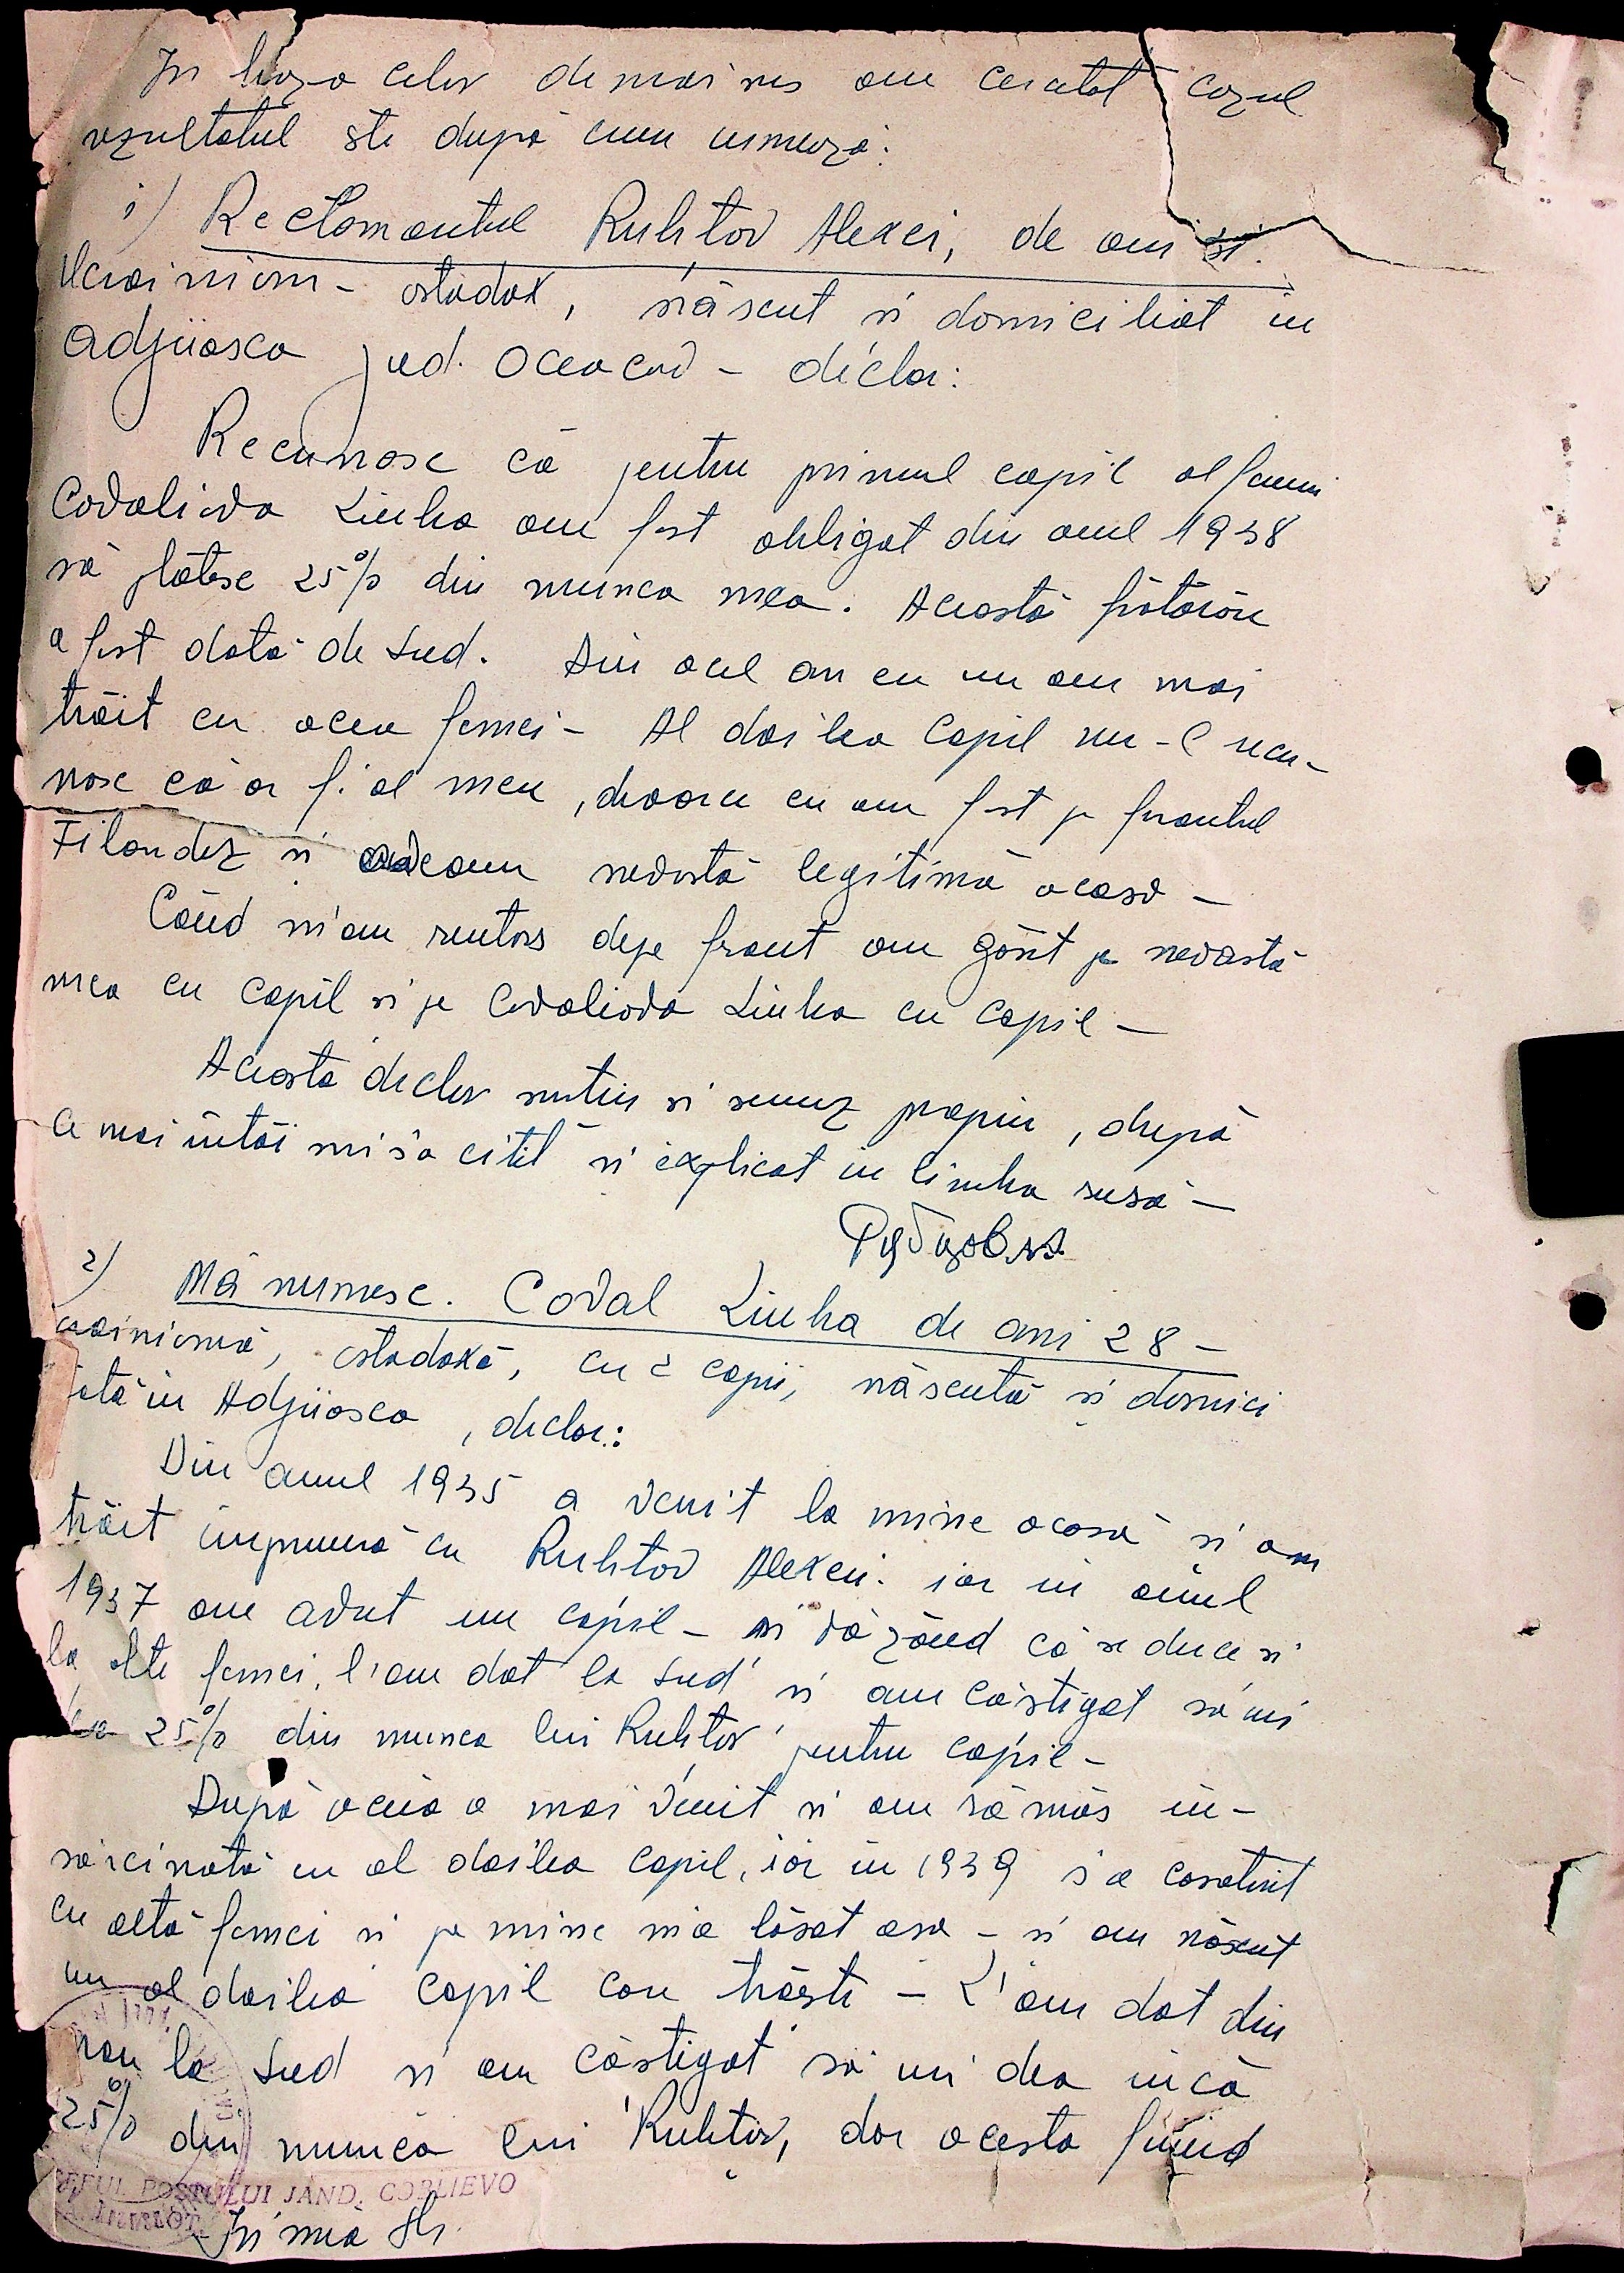 In baza celor de mai sus am cercetat cazul
rezultatul este după cum urmeaza:
1) Reclamantul Ruhtov Alexei, de ani 31.
Ucrainian - ortodox, născut si domiciliat in
Adjiiasca jud. Oceacov - declar:
Recunosc că pentru primul copil al femei
Covaliova Liuba am fost obligat din anul 1938
să plătesc 25% din munca mea. Această hotărâre
a fost dată de Sud. Din acel an eu nu am mai
trăit cu acea femei - Al doilea copil nu-l recu-
nosc că ar fi al meu, deoarece eu am fost pe frontul
Filandez si aveam nevastă legitimă acasă -
Când m'am rentors depe front am găsit pe nevastă
mea cu copil si pe Covaliova Liuba cu copil -
Aceasta declar sustin si semnez propriu, după
ce mai intâi mi s'a citit si explicat in limba rusă -
2) Mă numesc. Coval Liuba de ani 28 -
ucrainiană, ortodoxă, cu 2 copii, născută si domici
iată in Adjiiasca, declar:
Din anul 1935 a venit la mine acasă si am
trăit impreună cu Ruhtov Alexei. iar in anul
1937 am avut un copil - si văzând că se duce si
la alte femei, l'am dat la Sud si am câstigat să mi
25% din munca lui Ruhtov pentru copil -
După aceia a mai venit si am rămas in-
sărcinată cu al doilea copil, iar in 1939 s'a casatorit
cu altă femei si pe mine m'a lăsat asa - si am născut
un al doilea copil care trăeste - L'am dat din
nou la Sud si am câstigat să mi dea incă
25% din munca lui Ruhtov, dar acesta fiind
SEFUL POSTULUI JAND. COBLIEVO